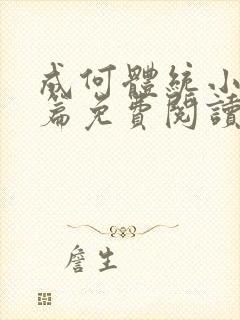 成何體統小
篇免費閱讀
詹生